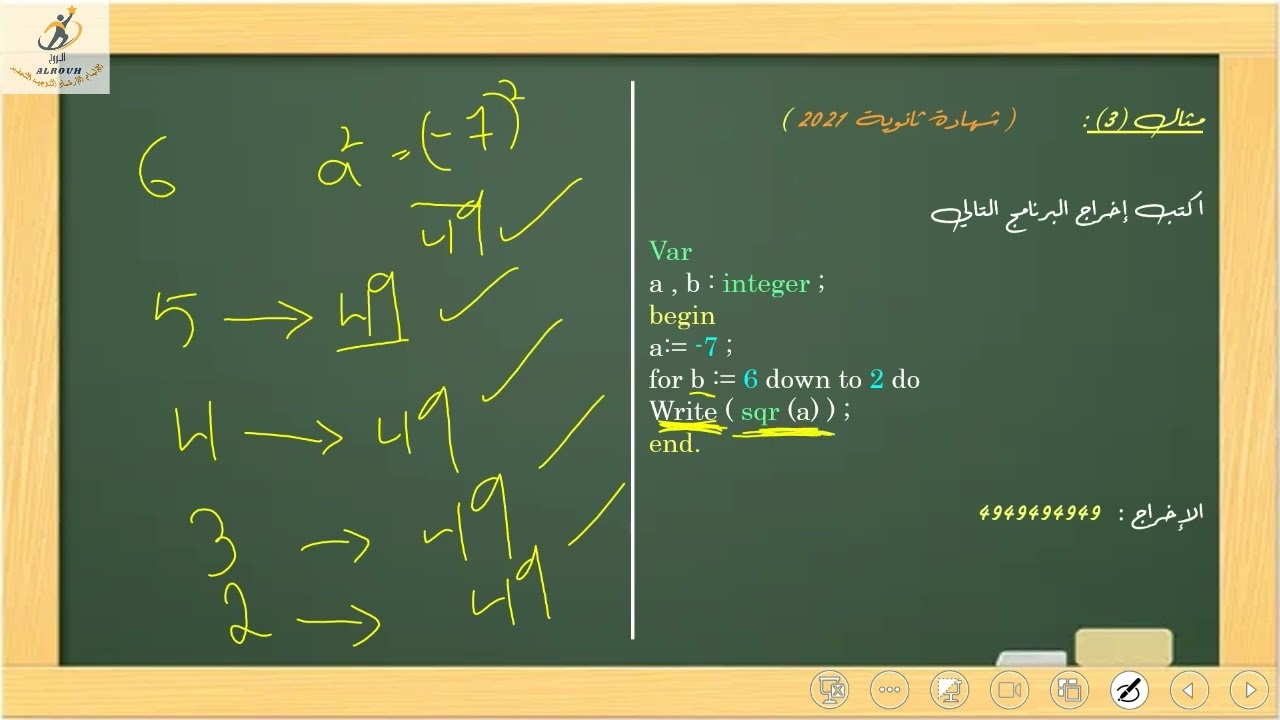 الروح
ALROUH
مثال (3) : ( شهادة ثانوية 2021 )
اكتب إخراج البرنامج التالي
Var
a , b : integer ;
begin
a:= -7 ;
for b := 6 down to 2 do
Write ( sqr (a) ) ;
end.
الإخراج : 4949494949
6 a² = (-7)²
49 ✓
5 → 49 ✓
4 → 49 ✓
3 → 49 ✓
2 → 49 ✓